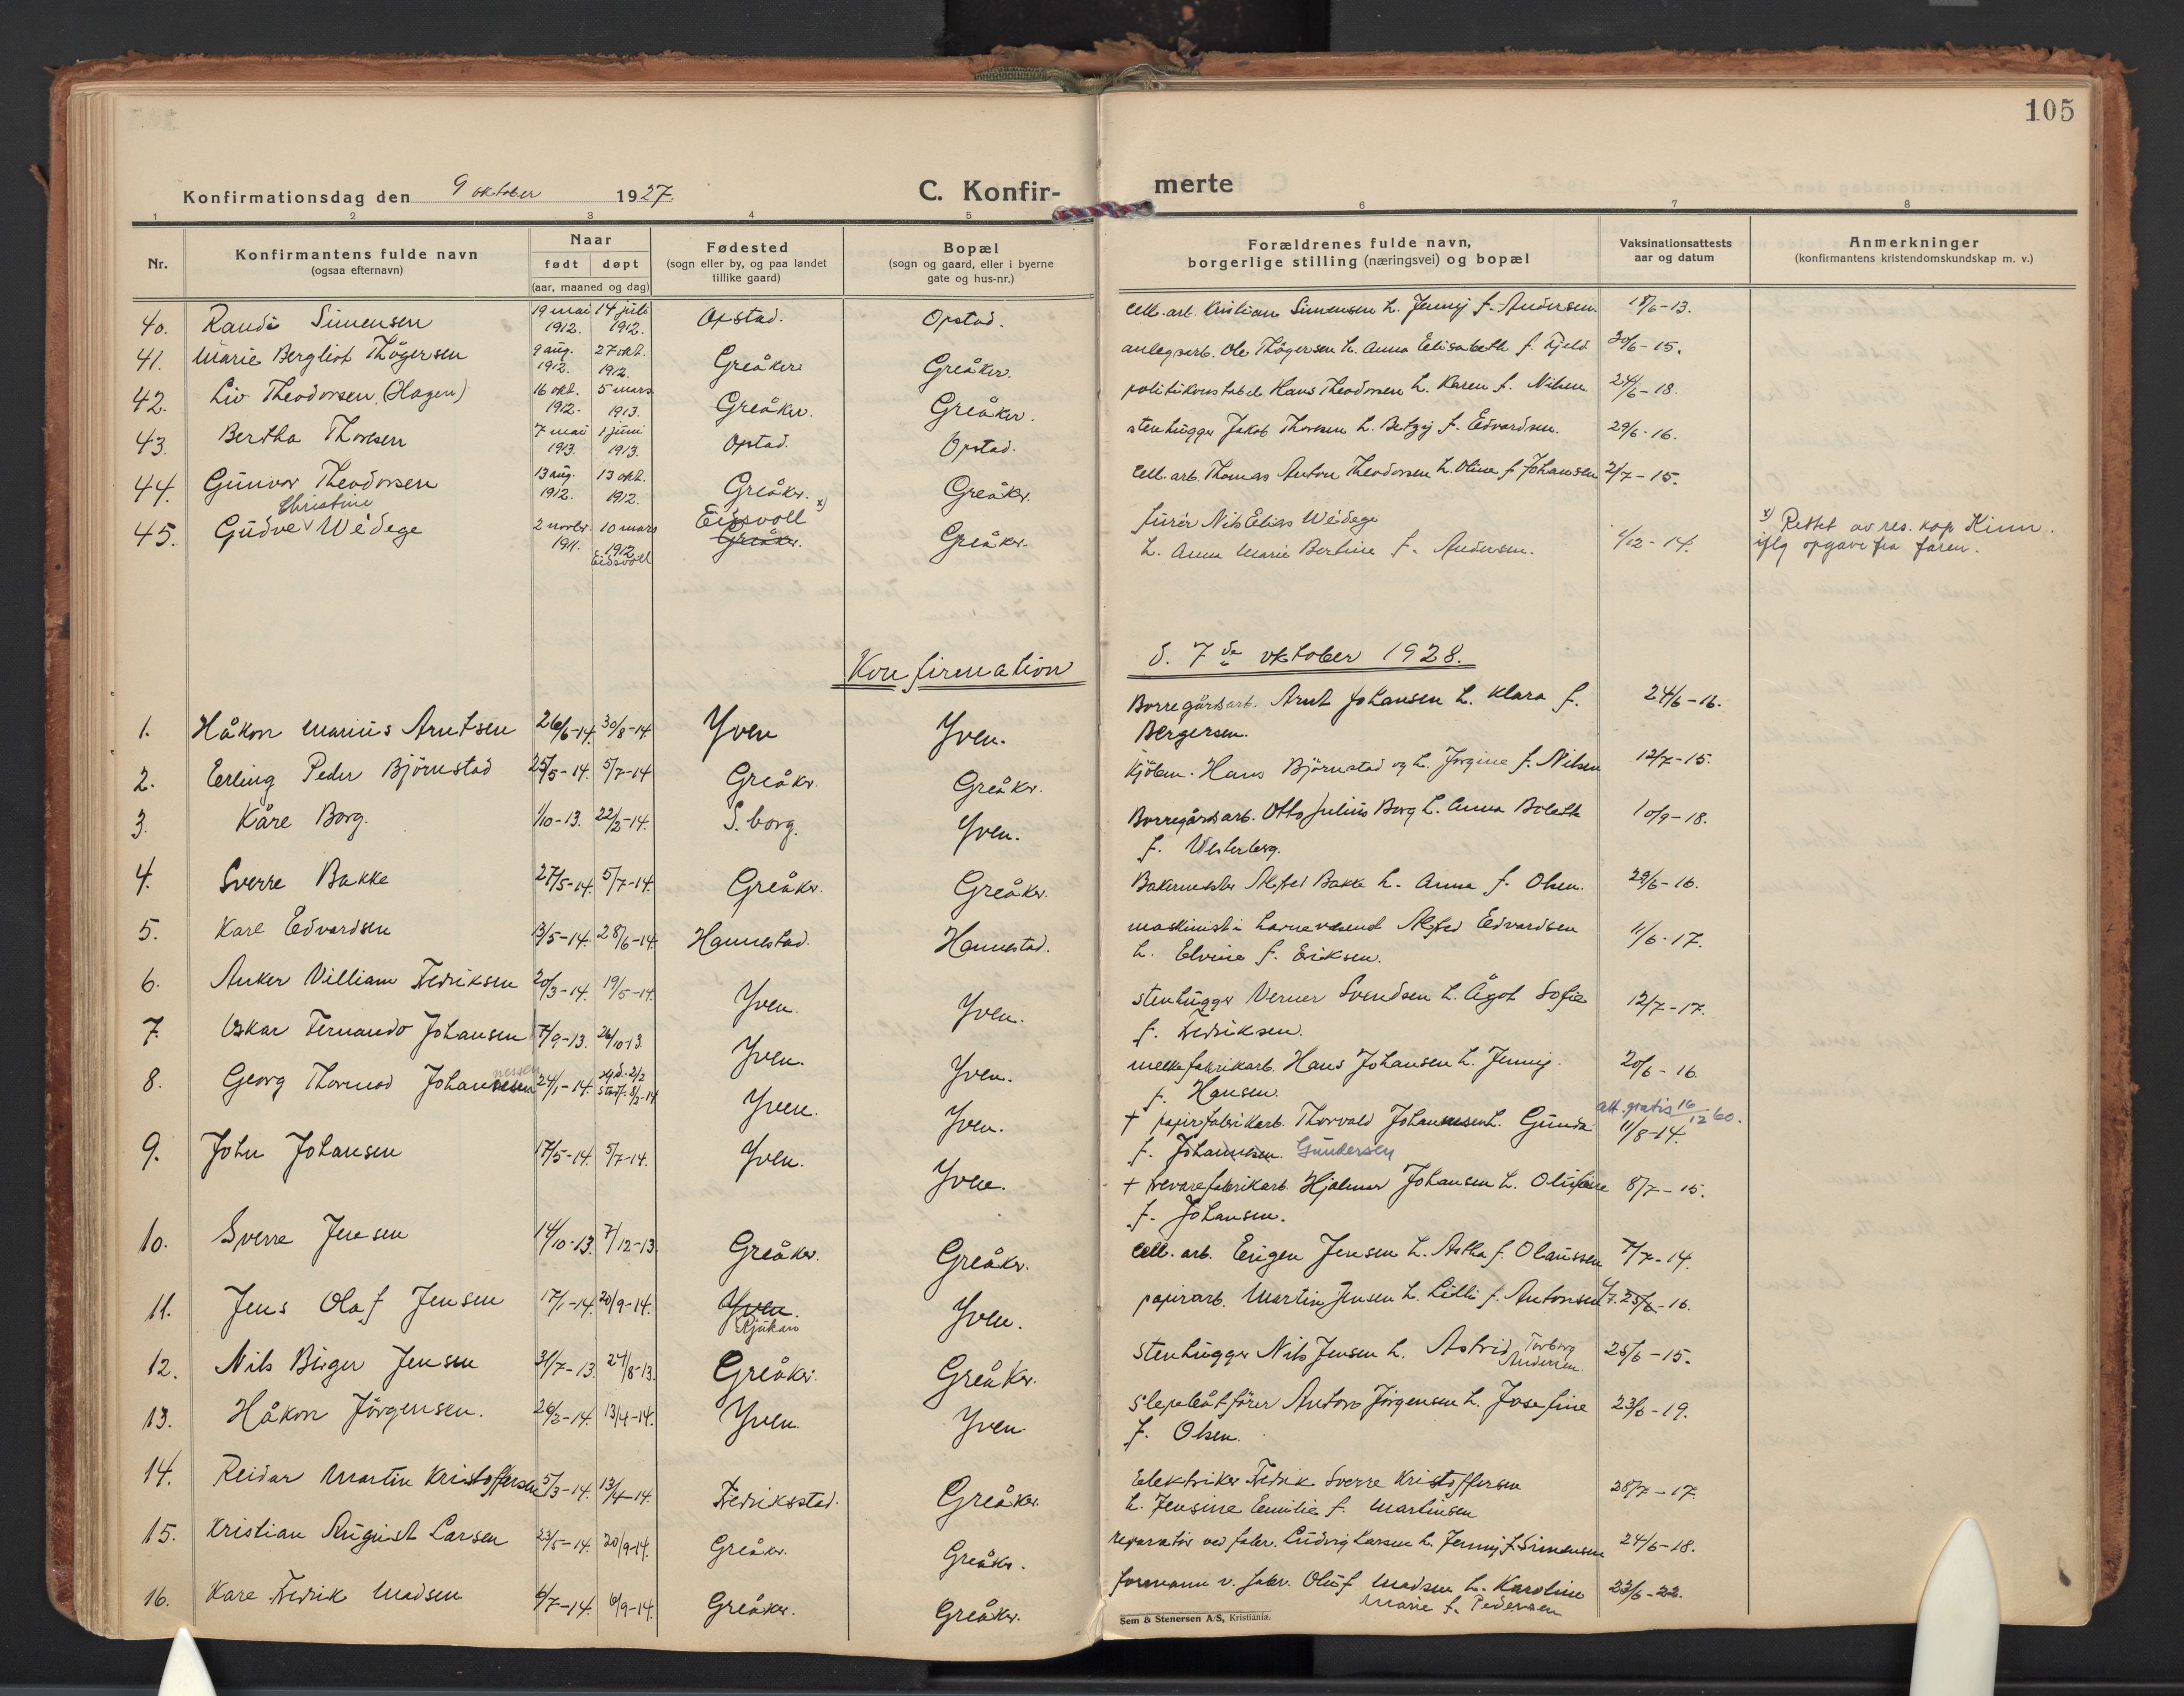 105
Konfirmationsdag den 9 oktober 1927.
C. Konfir-
merte
1 2 3 4 5 6 7 8
Nr.
Konfirmantens fulde navn
(ogsaa efternavn)
Naar
født døpt
(aar, maaned og dag)
Fødested
(sogn eller by, og paa landet
tillike gaard)
Bopæl
(sogn og gaard, eller i byerne
gate og hus-nr.)
Forældrenes fulde navn,
borgerlige stilling (næringsvei) og bopæl
Vaksinationsattests
aar og datum
Anmerkninger
(konfirmantens kristendomskundskap m. v.)
40. Randi Simensen 19 mai 1912. 14 juli 1912. Opstad. Opstad. Cell. arb. Kristian Simensen h. Jenny f. Andersen. 18/6-13.
41. Marie Bergliot Thögersen 9 aug. 1912. 27 okt. 1912. Greåker Greåker. anlegsarb. Ole Thögersen h. Anna Elisabeth f. Fjeld 30/6-15.
42. Liv Theodorsen (Hagen) 16 okt. 1912. 5 mars 1913. Greåker. Greåker. politikonstabel Hans Theodorsen h. Karen f. Nilsen 24/6-18.
43. Bertha Thoresen 7 mai 1913. 1 juni 1913. Opstad. Opstad. stenhugger Jakob Thoresen h. Betzy f. Edvardsen. 29/6-16.
44. Gunvor Theodorsen 13 aug. 1912. 13 okt. 1912. Greåker. Greåker. Cell. arb. Thomas Anton Theodorsen h. Oline f. Johansen 2/7-15.
Christine
45. Gudve Wédege 2 novbr. 1911. 10 mars 1912 Eidsvoll Eidsvoll x) Greåker. Greåker. furér Nils Elias Wédege 1/12-14. x) Rettet av res. kap Kinn.
h. Anna Marie Bertine f. Andersen. iflg opgave fra faren.
Konfirmation d. 7de oktober 1928.
1. Håkon Marius Arntsen 26/6-14. 30/8-14. Yven Yven. Borregårdsarb. Arnt Johansen h. Klara f. 24/6-16.
Bergersen.
2. Erling Peder Björnstad 25/5-14. 5/7-14 Greåker. Greåker. Kjöbm. Hans Björnstad og h. Jörgine f. Nilsen 12/7-15.
3. Kåre Borg. 1/10-13. 22/2-14. S.borg. Yven. Borregårdsarb. Otto Julius Borg h. Anna Bolette 10/9-18.
f. Westerberg.
4. Sverre Bakke 27/5-14. 5/7-14. Greåker. Greåker. Bakermester Alfred Bakke h. Anna f. Olsen. 29/6-16.
5. Kare Edvardsen 13/5-14. 28/6-14. Hannestad. Hannestad. maskinist i havnevæsenet Alfred Edvardsen 11/6-17.
h. Elvine f. Eriksen.
6. Anker Villiam Fredriksen 20/3-14. 19/5-14. Yven. Yven. stenhugger Verner Svendsen h. Ågot Sofie 12/7-17.
f. Fredriksen.
7. Oskar Fernando Johansen 7/9-13. 26/10-13. Yven. Yven. melkefabrikarb. Hans Johansen h. Jenny 20/6-16.
f. Hansen.
8. Georg Thormod Johannessen 24/1-14. hjd. 2/2 stadf. 8/3-14 Yven. Yven. † papirfabrikarb. Thorvald Johannesen h. Gunda att. gratis 16/12 60. 11/8-14.
f. Johannesen. Gundersen
9. John Johansen 17/5-14. 5/7-14. Yven. Yven. † trevarefabrikarb. Hjalmar Johansen h. Olufine 8/7-15.
f. Johansen.
10. Sverre Jensen 14/10-13. 7/12-13. Greåker. Greåker. Cell. arb. Eugen Jensen h. Astha f. Olaussen 7/7-14.
11. Jens Olaf Jensen 17/1-14. 20/9-14. Yven. Rjukan Yven. papirarb. Martin Jensen h. Lilli f. Antonsen 25/6-16.
12. Nils Birger Jensen 31/7-13. 24/8-13. Greåker. Greåker. stenhugger Nils Jensen h. Astrid Torborg Andersen. 25/6-15.
13. Håkon Jörgensen. 26/2-14. 13/4-14. Yven. Yven. slepebåtförer Anton Jörgensen h. Josefine 23/6-19.
f. Olsen.
14. Reidar Martin Kristoffersen 5/3-14. 13/4-14. Fredriksstad. Greåker. Elektriker Fredrik Sverre Kristoffersen 28/7-17.
h. Jensine Emilie f. Martinsen
15. Kristian August Larsen 23/5-14. 20/9-14. Greåker. Greåker. reparatör ved fabr. Ludvig Larsen h. Jenny f. Simensen 24/6-18.
16. Kare Fredrik Madsen 6/7-14. 6/9-14. Greåker. Greåker. formann v. fabr. Oluf Madsen h. Karoline 23/6-22.
Marie f. Pedersen
Sem & Stenersen A/S, Kristiania.